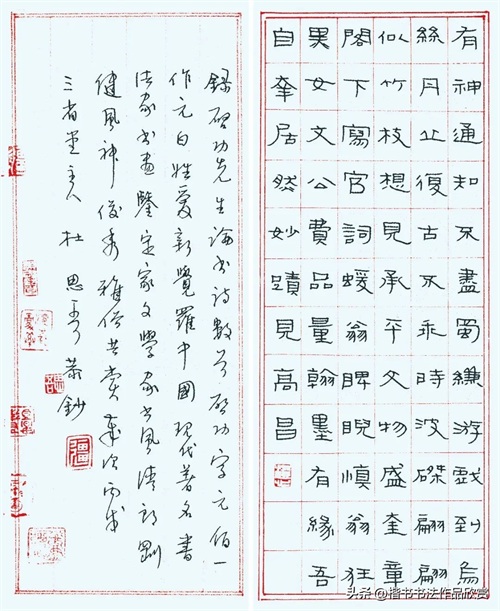 有神通知不盡蜀縑游戲到烏
絲丹止復古不乖時波磔翩翩
似竹枝想見承平文物盛奎章
閣下寫官詞蝯翁睥睨慎翁狂
黑女文公費品量翰墨有緣吾
自幸居然妙蹟見高昌
錄啓功先生論書詩數首啓功字元伯一
作元白姓愛新覺羅中國現代著名書
法家書畫鑒定家文學家書風清朗剛
健風神俊秀雅俗共賞歲次丙戌
三省堂主人杜思恭鈔
头条 @楷书书法作品欣赏